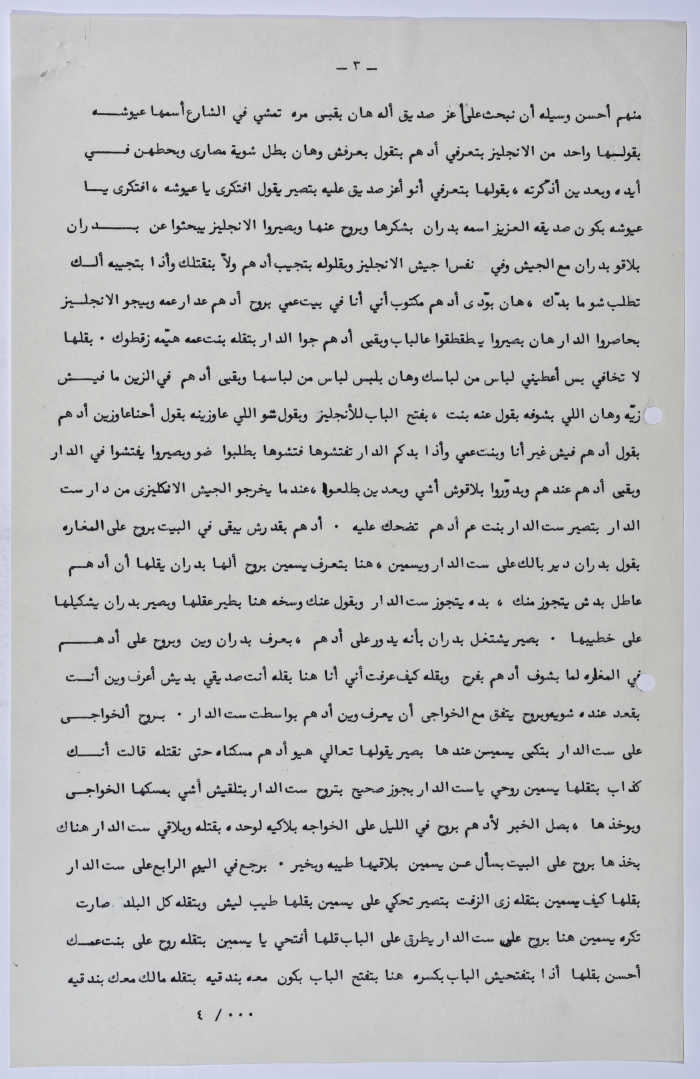 — ٣ —
منهم أحسن وسيله أن نبحث على أعز صديق أله هان بقبى مره تمشي في الشارع أسمها عيوشه
بقولها واحد من الانجليز بتعرفي أدهم بتقول بعرفش وهان بطل شوية مصارى وبحطهن في
أيده وبعدين أذكرته ، بقولها بتعرفي أنو أعز صديق عليه بتصير يقول افتكرى يا عيوشه ، افتكرى يا
عيوشه بكون صديقه العزيز اسمه بدران بشكرها وبروح عنها وبصيروا الانجليز يبحثوا عن بدران
بلاقو بدران مع الجيش وفي نفس الجيش الانجليز وبقلوله بتجيب أدهم ولاّ بنقتلك وأذا بتجيبه ألك
تطلب شو ما بدّك ، هان بوّدى أدهم مكتوب أني أنا في بيت عمي بروح أدهم عدار عمه وبيجو الانجليز
بحاصروا الدار هان بصيروا يطقطقوا عالباب وبقبى أدهم جوا الدار بتقله بنت عمه هيّمه زقطوك . بقلها
لا تخافي بس أعطيني لباس من لباسك وهان بلبس لباس من لباسها وبقبى أدهم في الزين ما فيش
زيّه وهان اللي بشوفه بقول عنه بنت ، بفتح الباب للأنجليز وبقول شو اللي عاوزينه بقول أحنا عاوزين أدهم
بقول أدهم فيش غير أنا وبنت عمي وأذا بدكم الدار تفتشوها فتشوها بطلبوا ضو وبصيروا يفتشوا في الدار
وبقبى أدهم عندهم وبدوّروا بلاقوش أشي وبعدين بطلعوا ، عندما يخرجو الجيش الانكليزى من دار ست
الدار بتصير ست الدار بنت عم أدهم تضحك عليه . أدهم بقدرش يبقى في البيت بروح على المغاره
بقول بدران دير بالك على ست الدار ويسمين ، هنا بتعرف يسمين بروح ألها بدران يقلها أن أدهم
عاطل بدش يتجوز منك ، بده يتجوز ست الدار وبقول عنك وسخه هنا بطير عقلها وبصير بدران يشكيلها
على خطيبها . بصير يشتغل بدران بأنه يدور على أدهم ، بعرف بدران وين وبروح على أدهم
في المغاره لما بشوف أدهم بفرح وبقله كيف عرفت أني أنا هنا بقله أنت صديقي بديش أعرف وين أنت
بقعد عنده شويه وبروح يتفق مع الخواجى أن يعرف وين أدهم بواسطت ست الدار . بروح ألخواجى
على ست الدار بتكبى يسمين عندها بصير يقولها تعالي هيو أدهم مسكناه حتى نقتله قالت أنك
كذاب بتقلها يسمين روحي يا ست الدار بجوز صحيح بتروح ست الدار بتلقيش أشي بمسكها الخواجى
وبوخذها ، بصل الخبر لأدهم بروح في الليل على الخواجه بلاكيه لوحده بقتله وبلاقي ست الدار هناك
بخذها بروح على البيت بسأل عن يسمين بلاقيها طيبه وبخير . برجع في اليوم الرابع على ست الدار
بقلها كيف يسمين بتقله زى الزفت بتصير تحكي على يسمين بقلها طيب ليش وبتقله كل البلد صارت
تكره يسمين هنا بروح على ست الدار يطرق على الباب قلها أفتحي يا يسمين بتقله روح على بنت عمك
أحسن بقلها أذا بتفتحيش الباب بكسره هنا بتفتح الباب بكون معه بندقيه بتقله مالك معك بندقيه
٤ / ٠٠٠